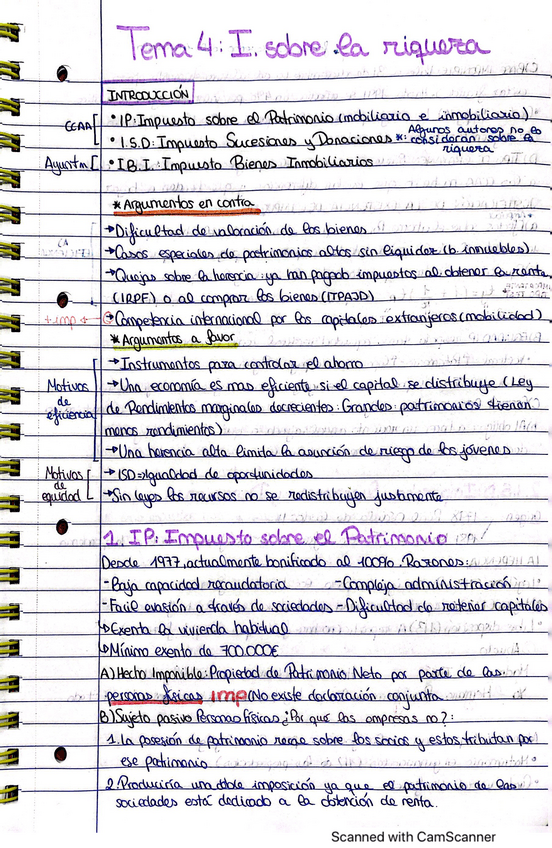 Tema 4: I. sobre la riqueza
INTRODUCCIÓN
CCAA [ • IP: Impuesto sobre el Patrimonio (mobiliario e inmobiliario)
• I.S.D: Impuesto Sucesiones y Donaciones *: Algunos autores no lo consideran sobre la riqueza
Ayuntm [ • I.B.I.: Impuesto Bienes Inmobiliarios
* Argumentos en contra
→ Dificultad de valoración de los bienes
→ Casos especiales de patrimonios altos sin liquidez (b. inmuebles)
→ Quejas sobre la herencia ya han pagado impuestos al obtener la renta
(IRPF) o al comprar los bienes (ITPAJD)
+imp ← → Competencia internacional por los capitales extranjeros (mobilidad)
* Argumentos a favor
→ Instrumentos para controlar el ahorro
Motivos de eficiencia
→ Una economía es mas eficiente si el capital se distribuye (Ley
de Rendimientos marginales decrecientes: Grandes patrimonios tienen
menos rendimientos)
→ Una herencia alta limita la asunción de riesgo de los jóvenes
Motivos de equidad [ → ISD => Igualdad de oportunidades
→ Sin leyes los recursos no se redistribuyen justamente
1. IP: Impuesto sobre el Patrimonio
Desde 1977, actualmente bonificado al 100%. Razones:
- Baja capacidad recaudatoria - Compleja administración
- Facil evasión a través de sociedades - Dificultad de retener capitales
↳ Exenta la vivienda habitual
↳ Mínimo exento de 700.000€
A) Hecho Imponible: Propiedad de Patrimonio Neto por parte de las
personas físicas imp No existe declaración conjunta
B) Sujeto pasivo: Personas Físicas ¿Por qué las empresas no?:
1. La posesión de patrimonio recae sobre los socios y estos tributan por
ese patrimonio
2. Produciría una doble imposición ya que el patrimonio de las
sociedades está dedicado a la obtención de renta.
Scanned with CamScanner